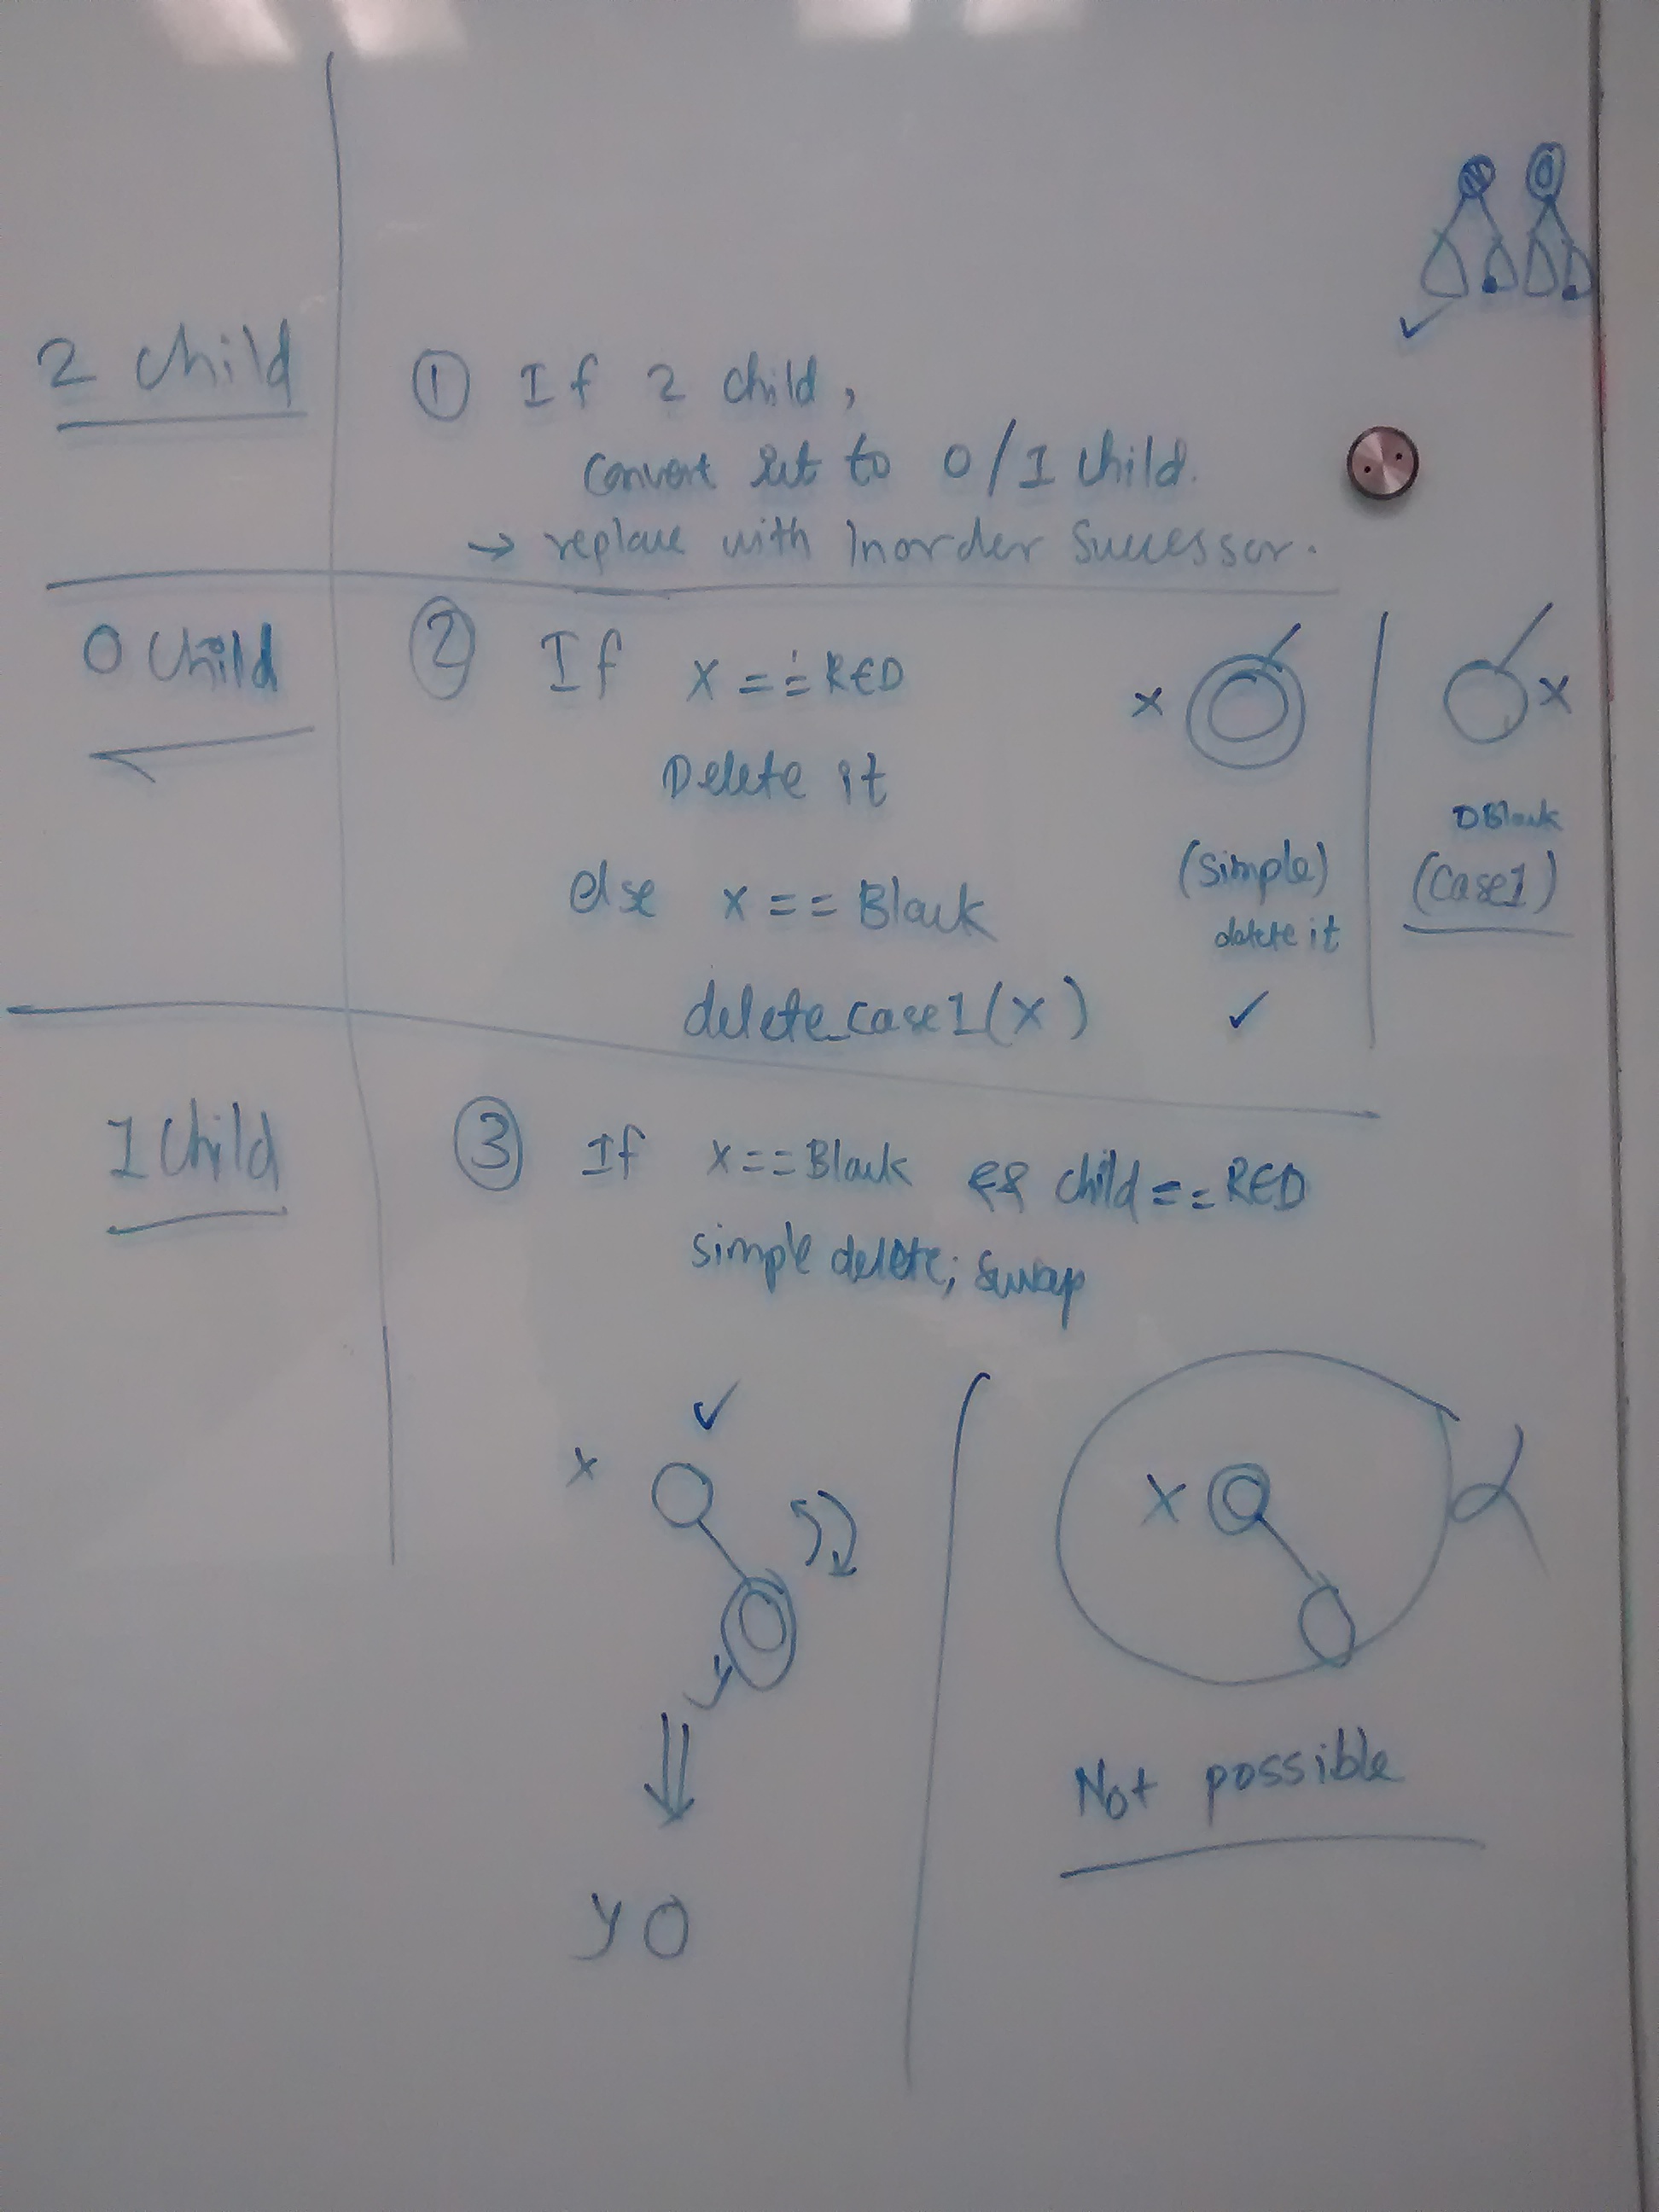 2 child
① If 2 child,
convert it to 0/1 child.
→ replace with Inorder Successor.
0 child
② If X == RED
Delete it
else X == Black
delete_case1(X)
X
(simple)
delete it
X
DBlack
(case1)
1 child
③ If X==Black && child == RED
simple delete; swap
X
y
y
X
Not possible